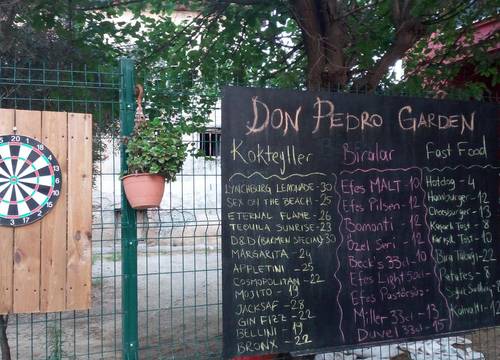 DON PEDRO GARDEN
Kokteyller
LYNCHBURG LEMONADE-30
SEX ON THE BEACH - 25
ETERNAL FLAME - 26
TEQUILA SUNRISE-23
D&D (BARMEN SPECIAL)30
MARGARITA - 24
APPLETINI - 25
COSMOPOLITAN - 22
MOJITO - 19
JACKSAF - 28
GIN FIZZ - 22
BELLINI - 19
BRONX - 22
Biralar
Efes MALT - 10
Efes Pilsen - 12
Bomonti - 12
Özel Seri - 12
Beck's 33cl - 10
Efes Light 50cl -
Efes Pastörsüz -
Miller 33cl - 13
Duvel 33cl - 15
Fast Food
Hotdog - 4
Hamburger - 12
Cheesburger - 13
Kaşarlı Tost - 8
Karışık Tost - 10
Bira Tabağı - 22
Patates - 8
Kahvaltı - 12
20 1 18 4 13